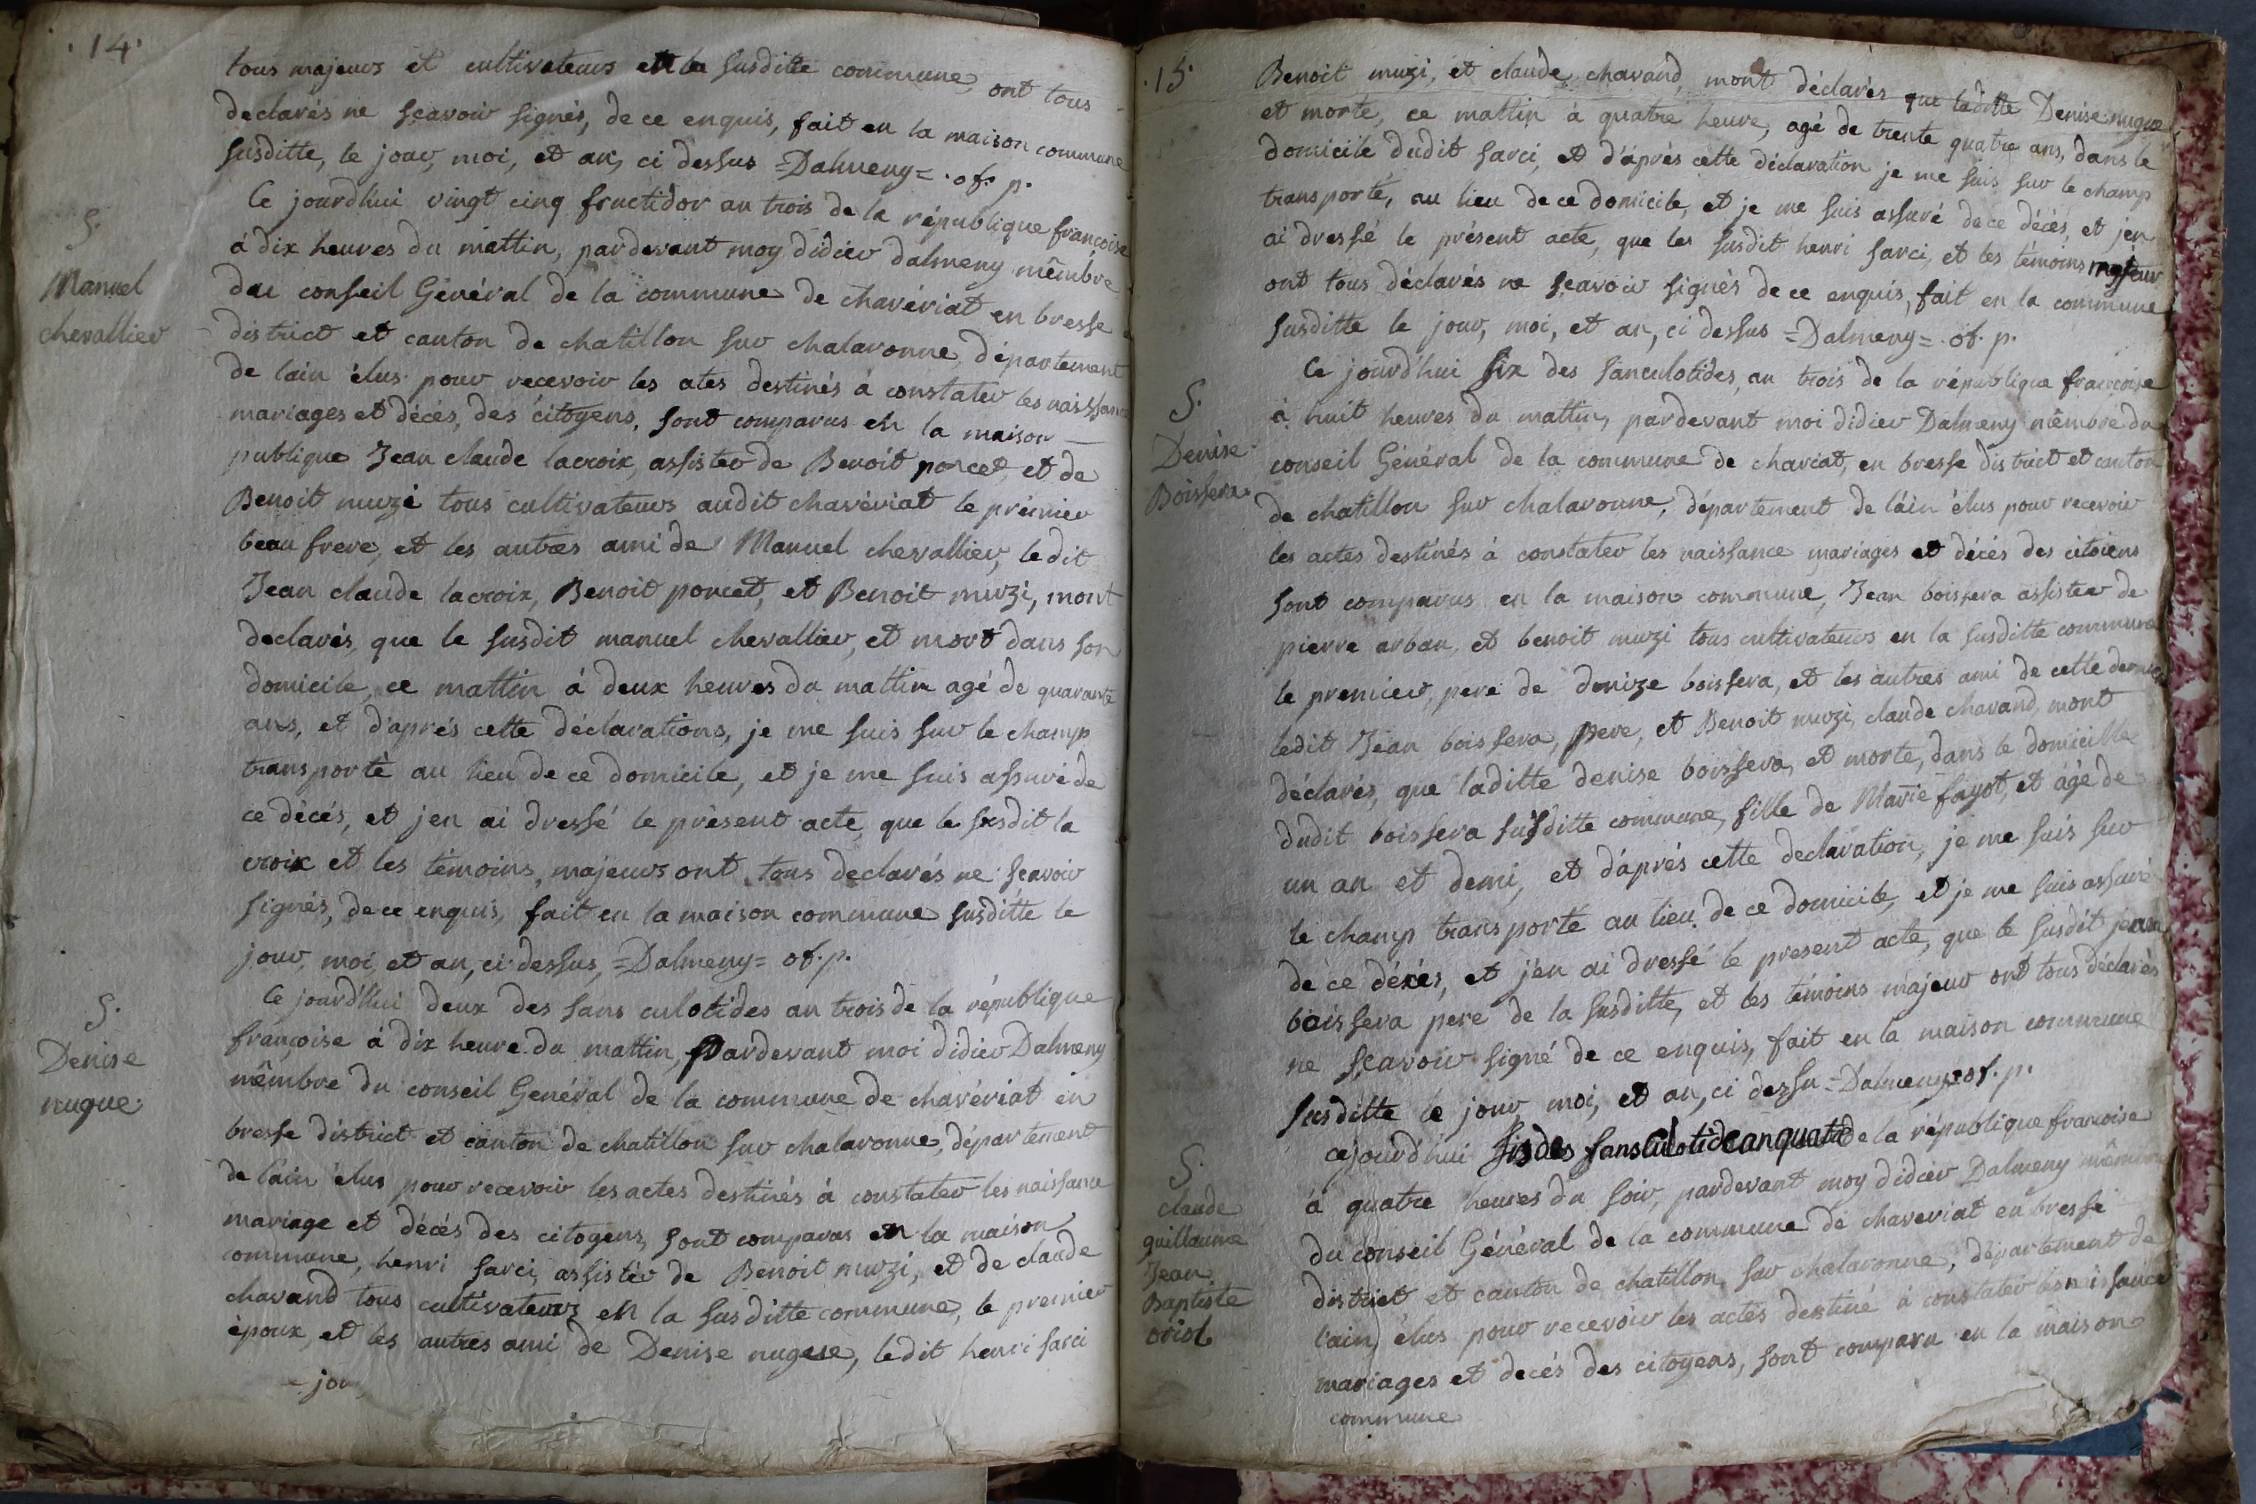 .14.
tous majeurs et cultivateurs en la susditte commune, ont tous
declarés ne scavoir signés, de ce enquis, fait en la maison commune
susditte, le jour, moi, et an, ci dessus =Dalmeny= .of. p.
S.
Manuel
chevallier
Ce jourdhui vingt cinq fructidor an trois de la république françoise
à dix heures du mattin, pardevant moy didier dalmeny mêmbre
du conseil Général de la commune de chavériat en bresse
district et canton de chatillon sur chalaronne, département
de lain élus pour recevoir les ates destinés à constater les naissance
mariages et décés, des citoyens, sont comparus en la maison
publique Jean claude lacroix, assister de Benoit poncet, et de
Benoit muzi tous cultivateurs audit chavériat le prémier
beau frere, et les autres ami de Manuel chevallier, le dit
Jean claude lacroix, Benoit poncet, et Benoit muzi, mont
declarés, que le susdit manuel chevallier, et mort dans son
domicile, ce mattin à deux heures du mattin agé de quarante
ans, et d'aprés cette déclarations, je me suis sur le champ
transporté au lieu de ce domicile, et je me suis assuré de
ce décés, et jen ai dressé le présent acte, que le susdit la
croix et les témoins, majeurs ont tous declarés ne scavoir
signés, de ce enquis, fait en la maison commune susditte le
jour, moi, et an, ci dessus, =Dalmeny= of. p.
S.
Denise
nugue.
Ce jourd'hui deux des sans culotides an trois de la république
françoise à dix heure du mattin, pardevant moi didier Dalmeny
mêmbre du conseil Genéral de la commune de chavériat en
bresse district et canton de chatillon sur chalaronne, département
de l'ain élus pour recevoir les actes destinés à constater les naissance
mariage et décés des citoyens, sont comparus en la maison
commune, henri sarci, assistér de Benoit muzi, et de claude
chavand tous cultivateurs en la susditte commune, le premier
époux, et les autres ami de Denise nugue, ledit henri sarci
.15.
Benoit muzi, et claude chavand, mont déclarés que laditte Denise nugue
et morte, ce mattin à quatre heure, agé de trente quatre ans, dans le
domicile dudit sarci, et d'áprés cette déclaration je me suis sur le champ
transporté, au lieu de ce domicile, et je me suis assuré de ce décés, et jen
ai dressé le présent acte, que les susdit henri sarci, et les témoins majeur
ont tous déclarés ne scavoir signés de ce enquis, fait en la commune
susditte le jour, moi, et an, ci dessus =Dalmeny= .of. p.
S.
Denise
Boissera
Ce jourd'hui six des sanculotides, an trois de la république françoise
à huit heures du mattin, pardevant moi didier Dalmeny mêmbre du
conseil Général de la commune de chariat, en bresse district et canton
de chatillon sur chalaronne, département de l'áin élus pour recevoir
les actes destinés à constater les naissance mariages et décés des citoiens
sont comparus en la maison commune, Jean boissera assister de
pierre arban, et benoit muzi tous cultivateurs en la susditte commune
le premier, pere de denize boissera, et les autres ami de cette
ledit Jean boissera, pere, et Benoit muzi, claude chavand, mont
déclarés, que laditte denise boissera, et morte, dans le domicille
dudit boissera susditte commune, fille de Marie fayot, et ágé de
un an et demi, et d'áprés cette declaration, je me suis sur
le champ transporté au lieu de ce domicile, et je me suis assuré
de ce décés, et j'en ai dressé le present acte, que le susdit jean
boissera pere de la susditte, et les témoins májeur ont tous déclarés
ne scavoir signé de ce enquis, fait en la maison commune
susditte le jour, moi, et an, ci dessu =Dalmeny= of. p.
S.
claude
guillaume
Jean
Baptiste
oriol
cejourd'hui six des sansculotide an quatre de la république françoise
à quatre heures du soir, pardevant moy didier Dalmeny mêmbre
du conseil Général de la commune de chaveriat en bresse
district et canton de chatillon, sur chalaronne, département de
l'ain, élus pour recevoir les actes destiné à constater les naissance
mariages et decés des citoyens, sont comparu en la maison
commune